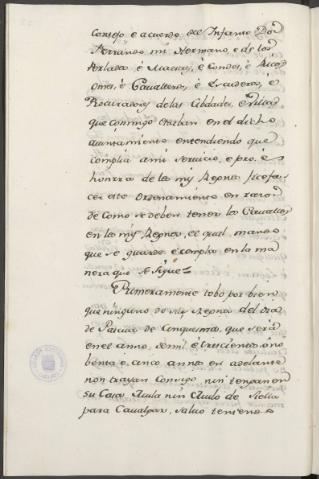 Consejo, è acuerdo del Infante Don
Fernando mi Hermano, è de los
Perlados è Maestres, è Condes, è Ricos
omes, è Cavalleros, è Escuderos, è
Procuradores de las Cibdades, è Villas
que conmigo estaban en el dicho
aiuntamiento entendiendo que
complia a mi servicio, è pro, è
honrra de los mis Regnos fice fa-
cer este Ordenamiento en razon
de como se deben tener los Cavallos
en los mis Regnos, el qual mando
que se guarde è compla en la ma
nera que se sigue
Primeramente tobe por bien
que ninguno de mis Regnos del dia
de Pascua de Cinquesma, que será
en el anno de mil è trescientos è no
benta è cinco annos en adelante
non trayan consigo nin tengan en
su Casa Mula nin Mulo de Siella
para Cavalgar, salvo teniendo